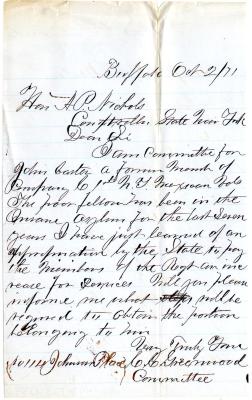 Buffalo Oct 2/71
Hon A.P. Nichols
Comptroller State New York
Dear Sir
I am Committee for
John Carter a former Memb of
Company C 1st N.Y Mexican Vols
The poor fellow has been in the
Insane Asylum for the last Seven
years I have just learned of an
appropriation by the State to pay
the Members of the Regt an inc
rease for Services Will you please
inform me what will be
required to obtain the portion
belonging to him
Very Truly Yours
No 114 Johnson Place C.C. Greenwood
Committee